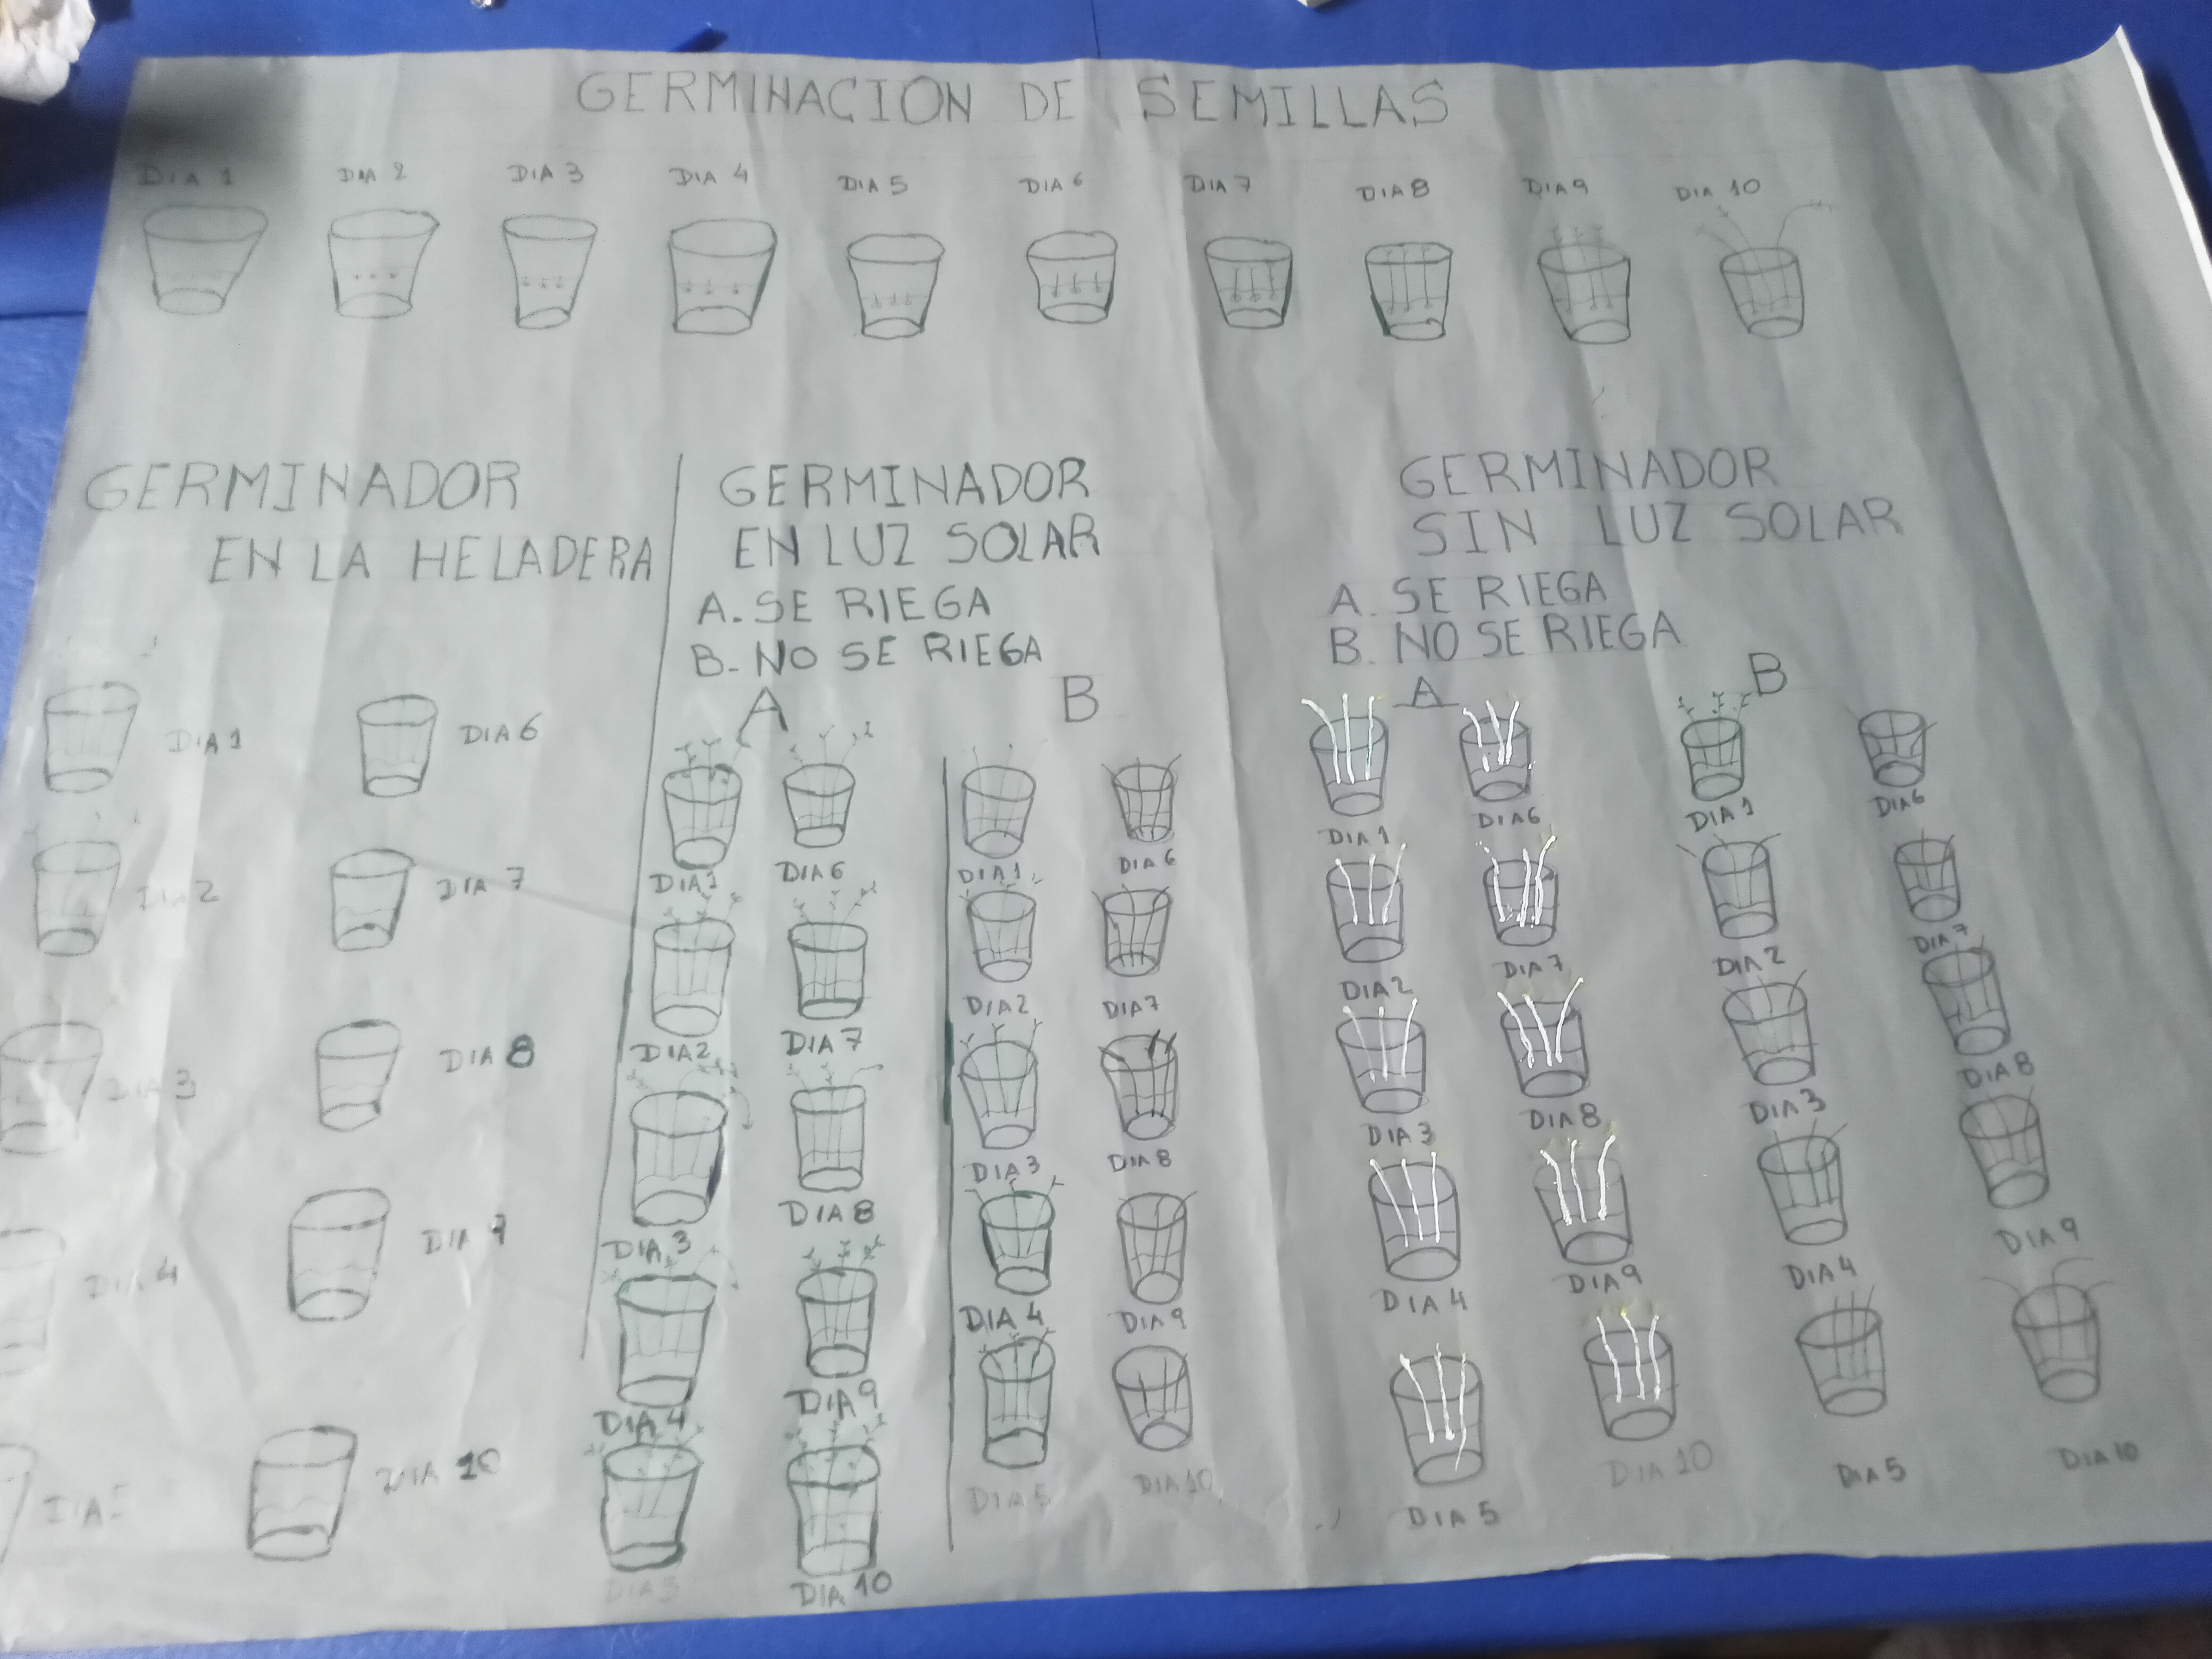 GERMINACION DE SEMILLAS
DIA 1 DIA 2 DIA 3 DIA 4 DIA 5 DIA 6 DIA 7 DIA 8 DIA 9 DIA 10
GERMINADOR
EN LA HELADERA
DIA 1 DIA 6
DIA 2 DIA 7
DIA 3 DIA 8
DIA 4 DIA 9
DIA DIA 10
GERMINADOR
EN LUZ SOLAR
A. SE RIEGA
B. NO SE RIEGA
A B
DIA 1 DIA 6 DIA 1 DIA 6
DIA 2 DIA 7 DIA 2 DIA 7
DIA 3 DIA 8 DIA 3 DIA 8
DIA 4 DIA 9 DIA 4 DIA 9
DIA 5 DIA 10 DIA 5 DIA 10
GERMINADOR
SIN LUZ SOLAR
A. SE RIEGA
B. NO SE RIEGA
A B
DIA 1 DIA 6 DIA 1 DIA 6
DIA 2 DIA 7 DIA 2 DIA 7
DIA 3 DIA 8 DIA 3 DIA 8
DIA 4 DIA 9 DIA 4 DIA 9
DIA 5 DIA 10 DIA 5 DIA 10